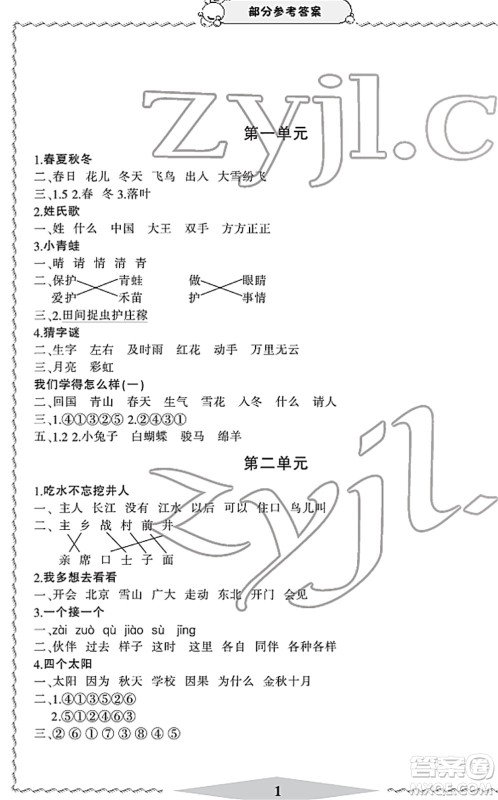 部分参考答案
zyjl.c
第一单元
1.春夏秋冬
二、春日 花儿 冬天 飞鸟 出人 大雪纷飞
三、1.5 2.春 冬 3.落叶
2.姓氏歌
一、姓 什么 中国 大王 双手 方方正正
3.小青蛙
一、晴 请 情 清 青
二、保护 青蛙 做 眼睛
爱护 禾苗 护 事情
三、2.田间捉虫护庄稼
4.猜字谜
二、生字 左右 及时雨 红花 动手 万里无云
三、月亮 彩虹
我们学得怎么样(一)
二、回国 青山 春天 生气 雪花 入冬 什么 请人
三、1.④①③②⑤ 2.②④③①
五、1.2 2.小兔子 白蝴蝶 骏马 绵羊
第二单元
1.吃水不忘挖井人
一、主人 江长 没有 江水 以后 可以 住口 鸟儿叫
二、主 乡 战 村 前 井
亲 席 口 士 子 面
2.我多想去看看
一、开会 北京 雪山 广大 走动 东北 开门 会见
3.一个接一个
一、zài zuò qù jiào sù jīng
二、伙伴 过去 样子 这时 这里 各自 同伴 各种各样
4.四个太阳
一、太阳 因为 秋天 学校 因果 为什么 金秋十月
二、1.④①③⑤②⑥
2.⑤①②④⑥③
三、②⑥①⑦③⑧④⑤
zyjl.c
答案圈
MXQE.COM
1